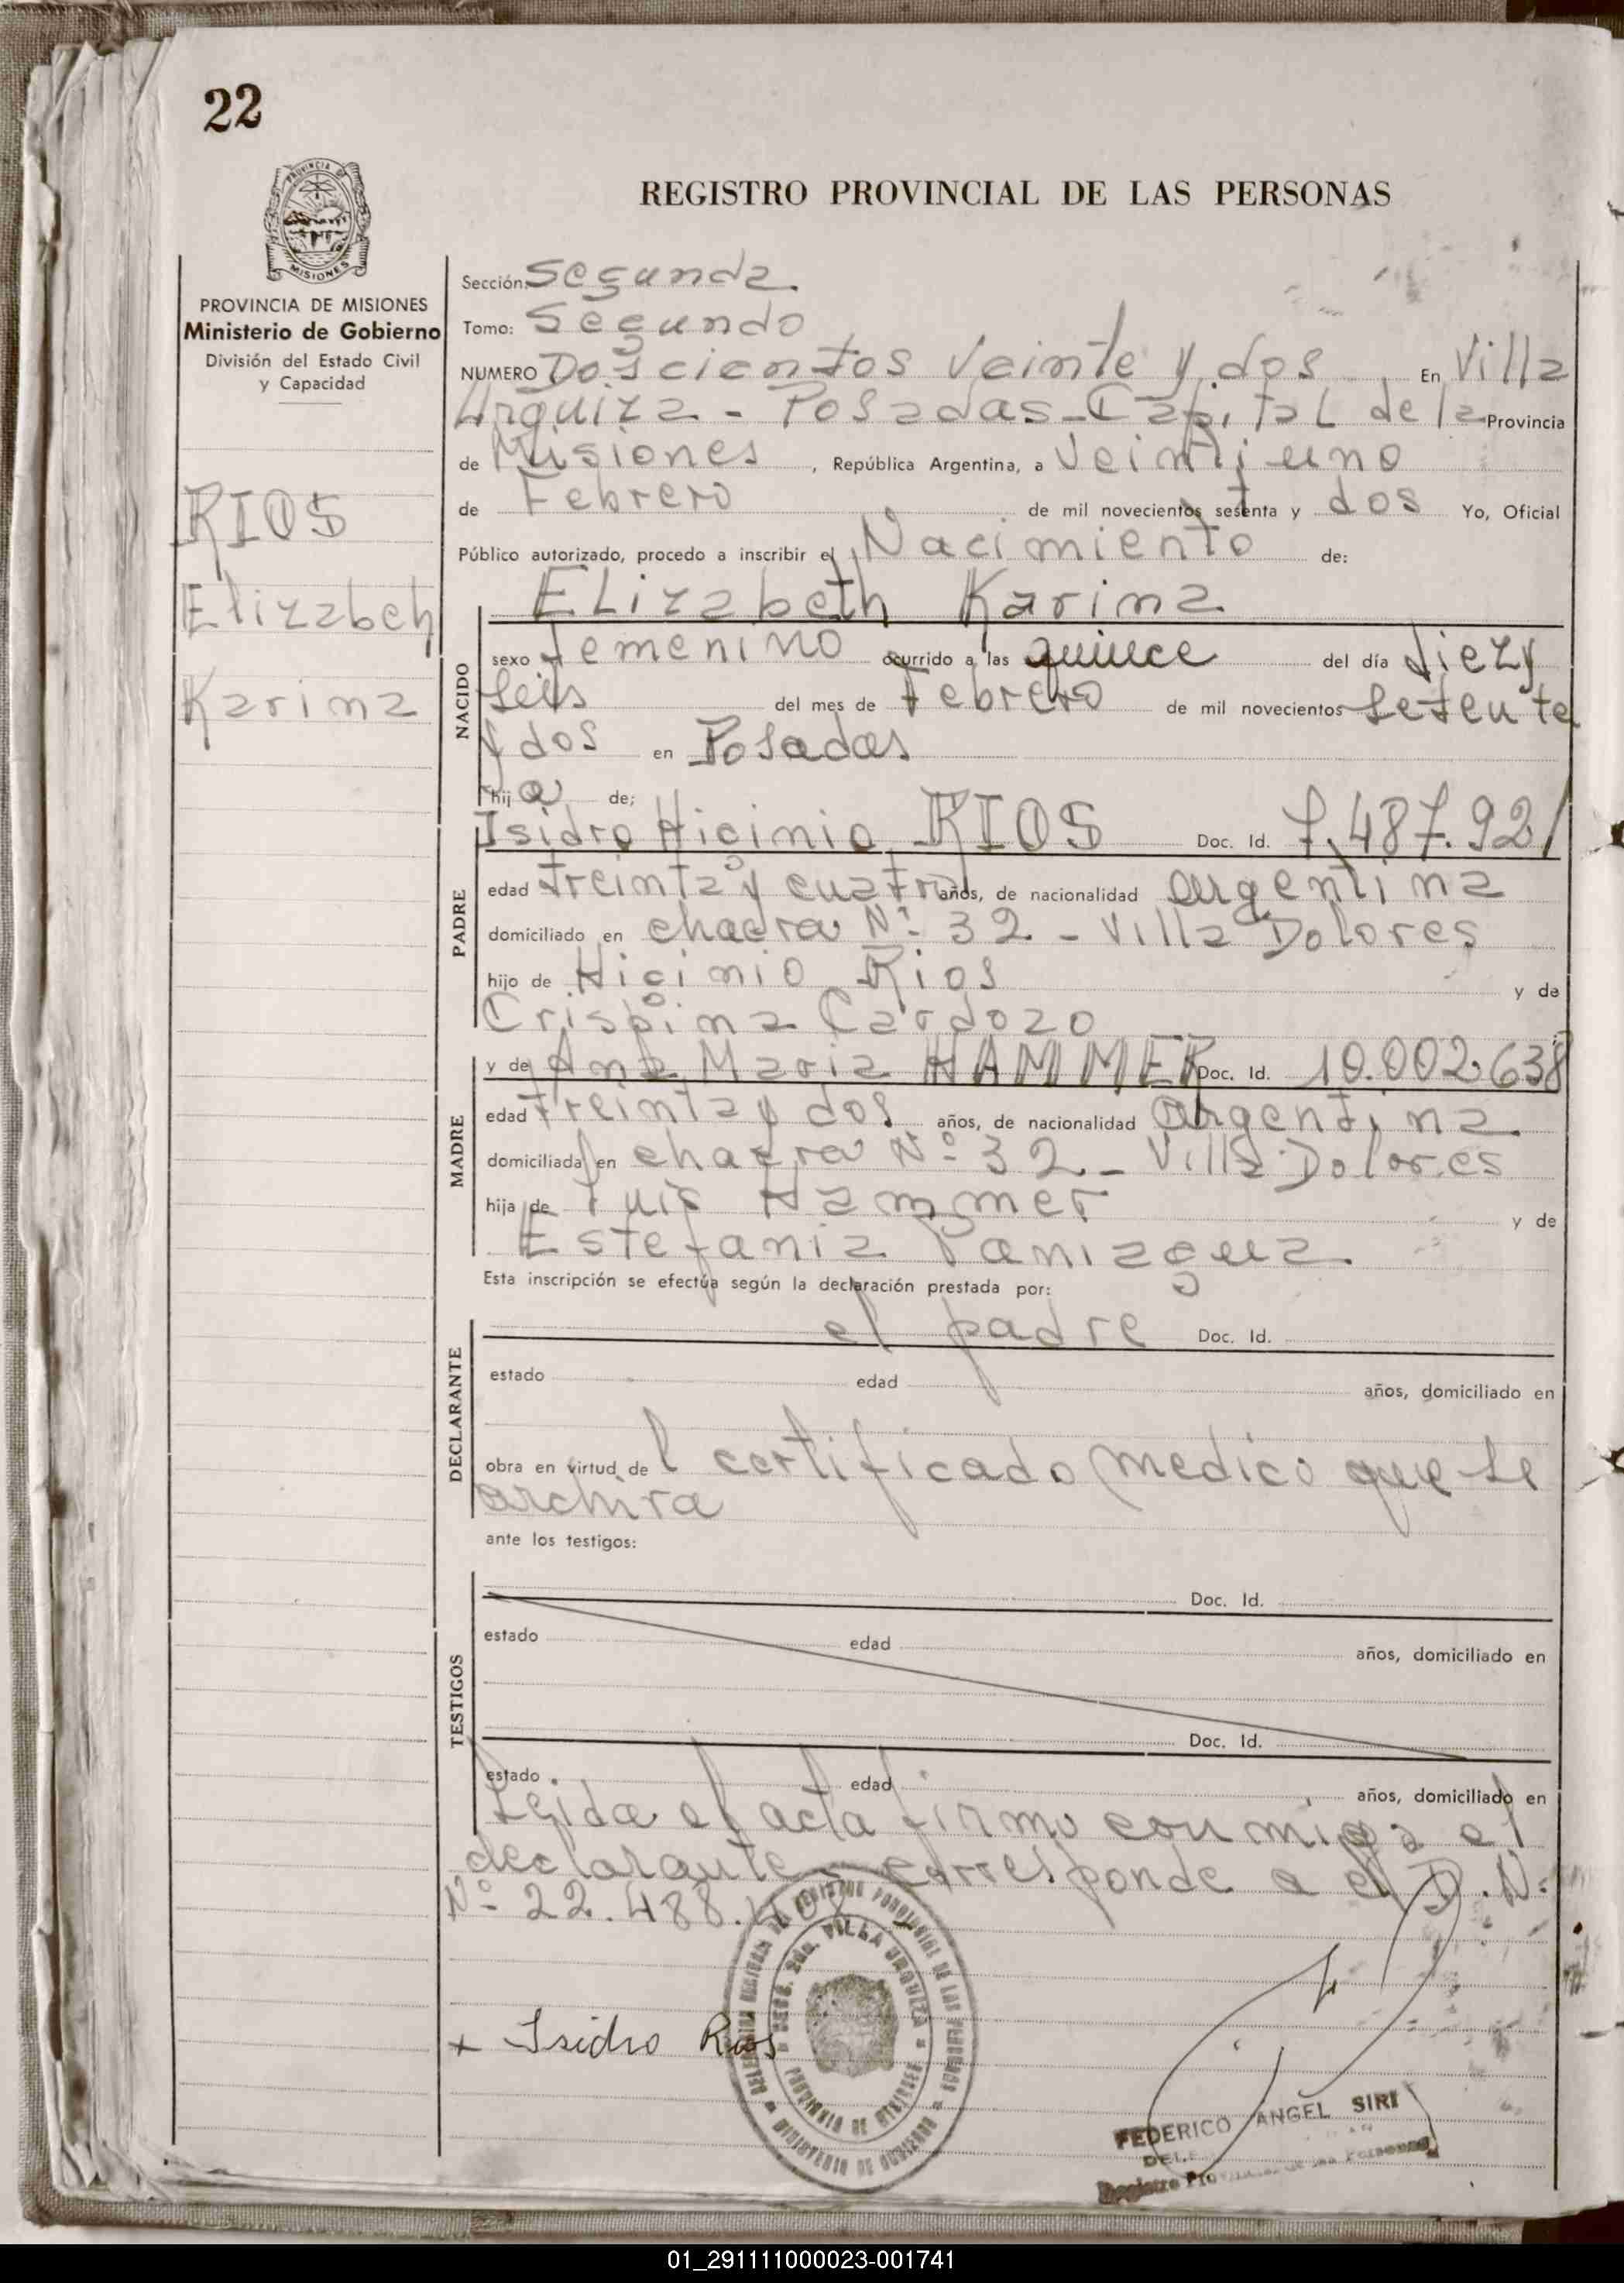 22
PROVINCIA DE
MISIONES
REGISTRO PROVINCIAL DE LAS PERSONAS
PROVINCIA DE MISIONES
Ministerio de Gobierno
División del Estado Civil
y Capacidad
RIOS
Elizabeh
Karina
Sección: Segunda
Tomo: Segundo
NUMERO Doscientos Veinte y dos En Villa
Urquiza - Posadas - Capital de la Provincia
de Misiones, República Argentina, a Veintiuno
de Febrero de mil novecientos setenta y dos Yo, Oficial
Público autorizado, procedo a inscribir el Nacimiento de:
Elizabeth Karina
NACIDO
sexo femenino ocurrido a las quince del día diez y
seis del mes de Febrero de mil novecientos setenta
y dos en Posadas
hija de;
PADRE
Isidro Hicinio RIOS Doc. Id. 7.487.921
edad treinta y cuatro años, de nacionalidad argentina
domiciliado en chacra Nº 32 - Villa Dolores
hijo de Hicinio Rios y de
Crispina Cardozo
MADRE
y de Ana Maria HAMMER Doc. Id. 10.002.638
edad treinta y dos años, de nacionalidad argentina
domiciliada en chacra Nº 32 - Villa Dolores
hija de Luis Hammer y de
Estefania
Esta inscripción se efectúa según la declaración prestada por:
DECLARANTE
el padre Doc. Id.
estado edad años, domiciliado en
obra en virtud de l certificado medico que se
archiva
ante los testigos:
TESTIGOS
Doc. Id.
estado edad años, domiciliado en
Doc. Id.
estado edad años, domiciliado en
Leida el acta firmo con migo el
declarante - corresponde a el D.N.
Nº 22.488.
+ Isidro Rios
VILLA URQUIZA
PROVINCIA DE MISIONES
FEDERICO ANGEL SIRI
Registro Provincial de las Personas
01_291111000023-001741